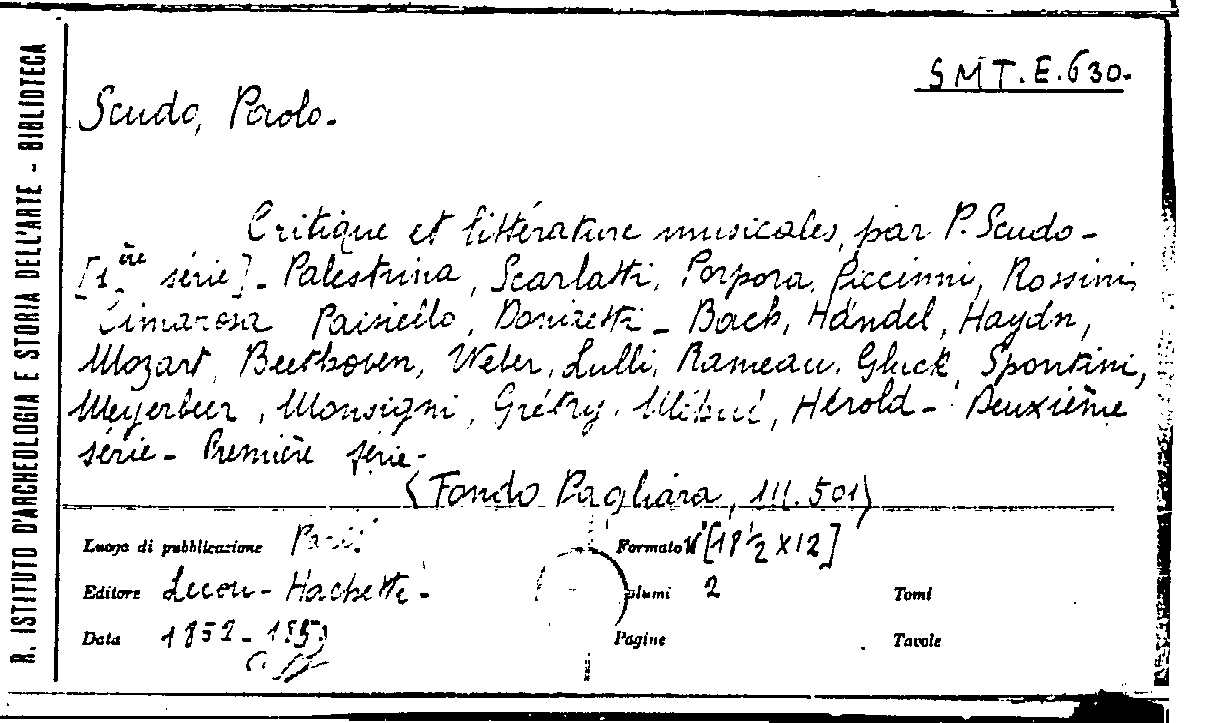 R. ISTITUTO D'ARCHEOLOGIA E STORIA DELL'ARTE - BIBLIOTECA
SMT.E.630.
Scudo, Paolo.
Critique et littérature musicales, par P. Scudo -
[1ère série]. Palestrina, Scarlatti, Porpora, Piccinni, Rossini,
Cimarosa Paisiello, Donizetti - Bach, Händel, Haydn,
Mozart, Beethoven, Weber, Lulli, Rameau, Gluck, Spontini,
Meyerbeer, Monsigni, Grétry, Méhul, Hérold - Deuxième
série - Première série.
(Fondo Pagliara, III. 501)
Luogo di pubblicazione Paris Formato [18½ x 12]
Editore Lecou - Hachette. Volumi 2 Tomi
Data 1852 - Pagine Tavole